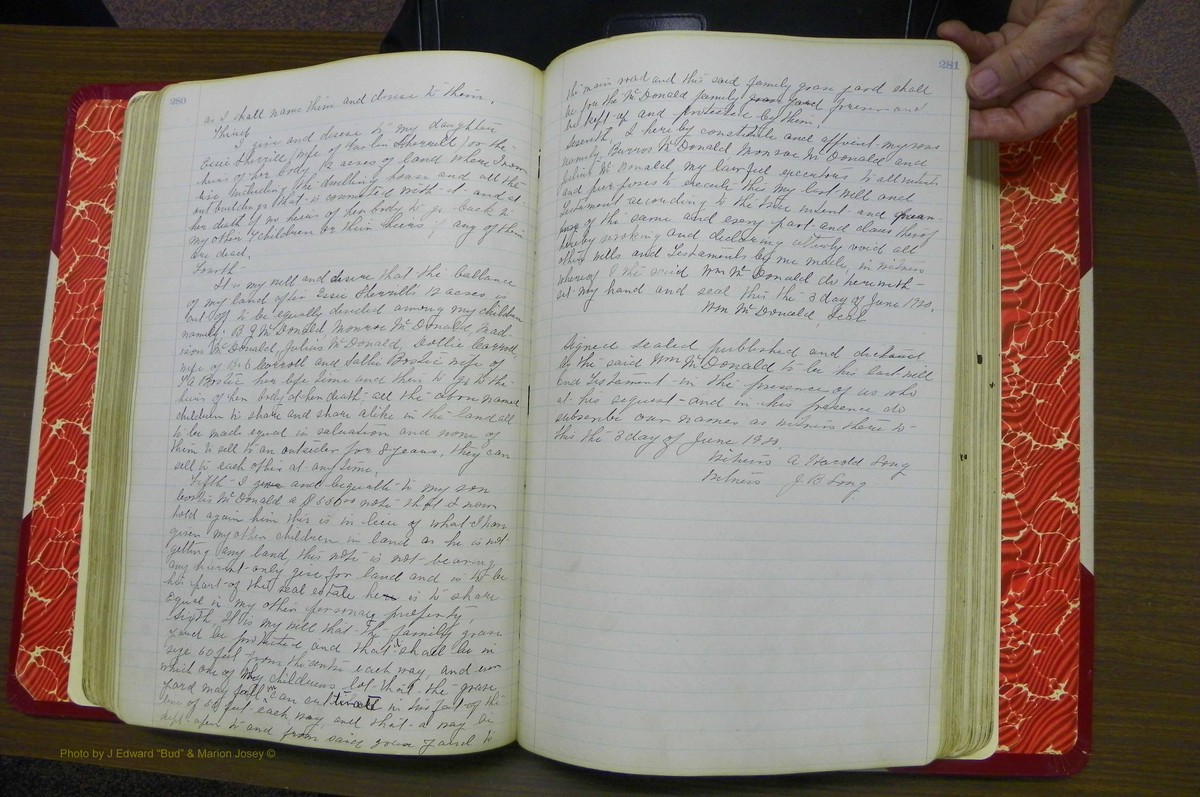 280
as I shall name them and desire to them.
Third
I give and desire to my daughter
Essie Sherrill, wife of Sherrill or the
heirs of her body 12 acres of land where I now
live including the dwelling house and all the
out buildings that is connected with it and at
her death if no heirs of her body to go back to
my other 7 children or their heirs if any of them
are dead.
Fourth
It is my will and desire that the ballance
of my land after Essie Sherrills 12 acres is
cut off to be equally devided among my children
namely. B. McDonald Monroe McDonald, Mad-
ison McDonald, Julius McDonald, Dottie Carroll
wife of Carroll and Sallie Bostic wife of
Bostic her life time and then to go to the
heirs of her body at her death all the above named
children to share and share alike in the land all
to be made equal in valuation and none of
them to sell to an outsider for 8 years, they can
sell to each other at any time.
Fifth I give and bequeath to my son
McDonald a note that I now
hold again him this is in lieu of what I have
given my other children in land as he is not
getting any land this note is not bearing
any only give for land and is to be
his part of the real estate he is to share
equal in my other personal property,
Sixth, It is my will that the family grave
yard be protected and that it shall be in
size 60 feet from the center each way, and even
which one of my childrens lot that the grave
yard may fall on can cultivate in two feet of the
line of 60 feet each way and that a way be
kept open to and from said grave yard to
281
the main road and this said family grave yard shall
be for the McDonald family grave yard forever and
be kept up and protected by them.
Seventh, I here by constitute and appoint my sons
namely Burros McDonald, Monroe McDonald and
Julius McDonald my lawful executors to all intents
and purposes to execute this my last will and
Testament according to the true intent and mean-
ing of the same and every part and claus thereof
hereby revoking and declaring utterly void all
other wills and Testaments by me made, in witness
whereof I the said Wm McDonald do here with
set my hand and seal this the 3 day of June 1920.
Wm McDonald, Seal
Signed sealed published and declared
by the said Wm McDonald to be his last will
and Testament in the presence of us who
at his request and in his presence do
subscribe our names as witness there to
this the 3 day of June 1920
Witness A Harold Long
Witness J B Long
Photo by J Edward "Bud" & Marion Josey ©